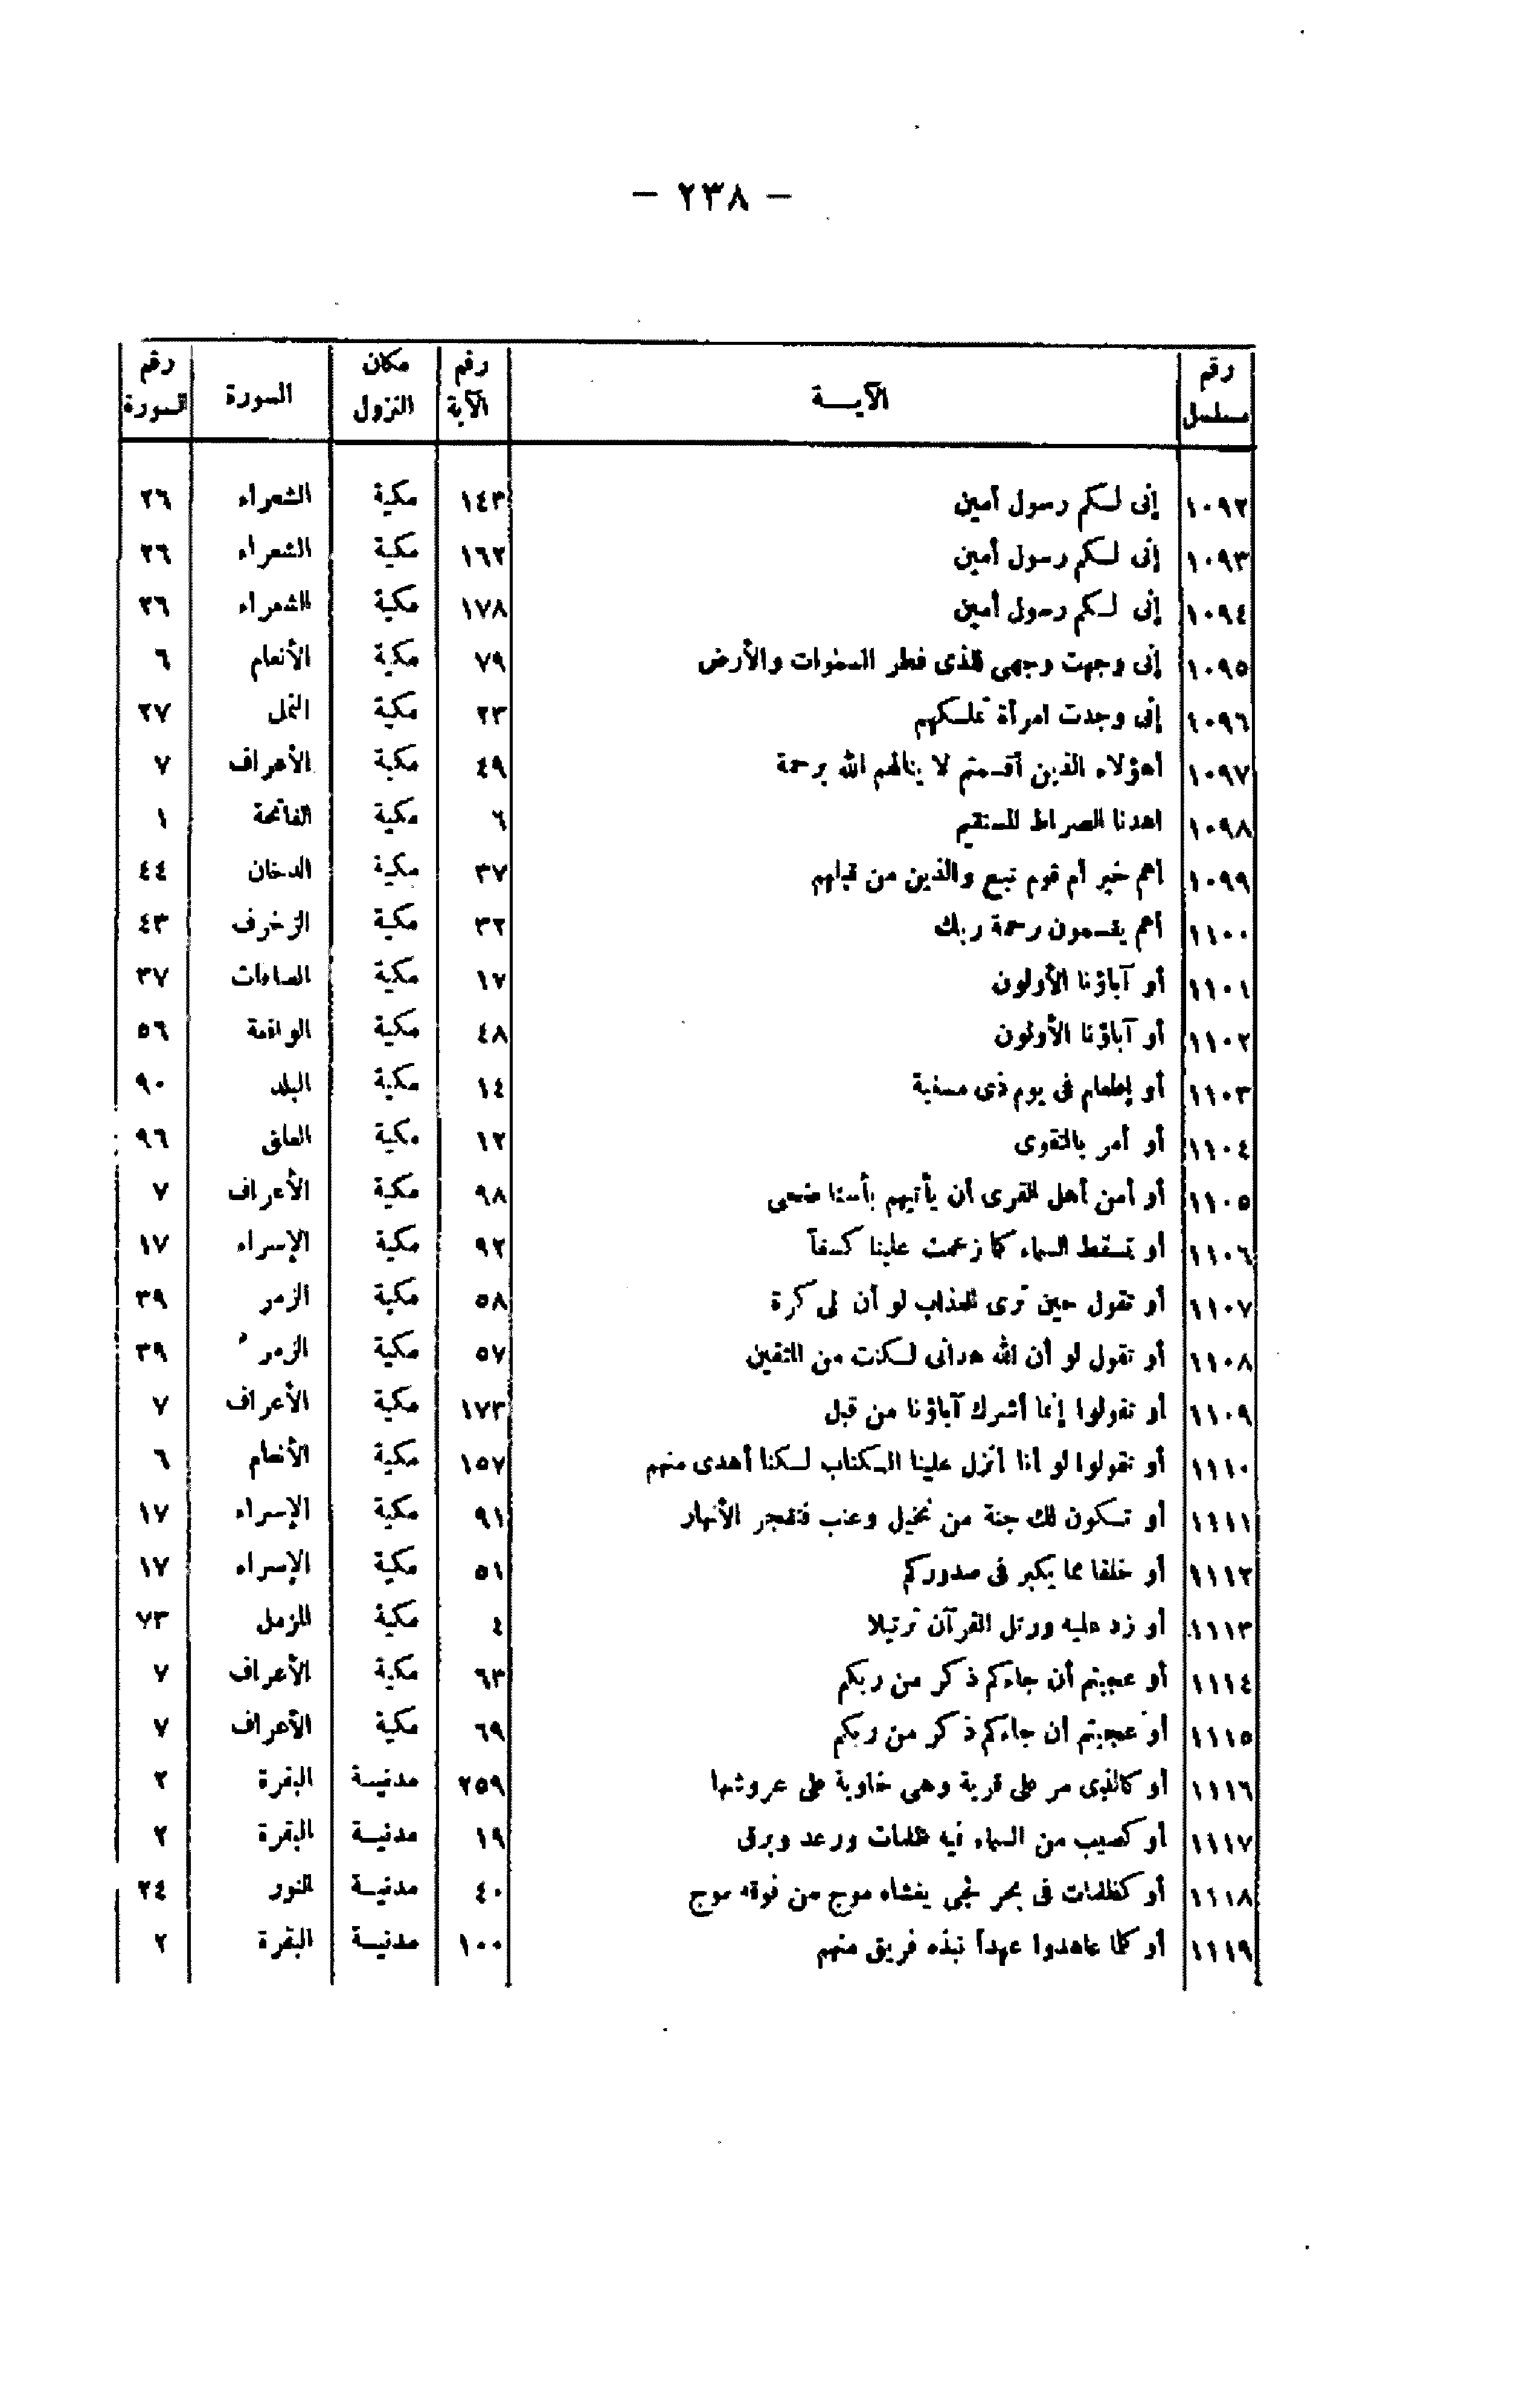 — ٢٣٨ —
رقم مسلسل | الآيـــة | رقم الآية | مكان النزول | السورة | رقم السورة
١٠٩٢ | إنى لكم رسول أمين | ١٤٣ | مكية | الشعراء | ٢٦
١٠٩٣ | إنى لكم رسول أمين | ١٦٢ | مكية | الشعراء | ٢٦
١٠٩٤ | إنى لكم رسول أمين | ١٧٨ | مكية | الشعراء | ٢٦
١٠٩٥ | إنى وجهت وجهى للذى فطر السموات والأرض | ٧٩ | مكية | الأنعام | ٦
١٠٩٦ | إنى وجدت امرأة تملكهم | ٢٣ | مكية | النمل | ٢٧
١٠٩٧ | أهؤلاء الذين أقسمتم لا ينالهم الله برحمة | ٤٩ | مكية | الأعراف | ٧
١٠٩٨ | اهدنا الصراط المستقيم | ٦ | مكية | الفاتحة | ١
١٠٩٩ | أهم خير أم قوم تبع والذين من قبلهم | ٣٧ | مكية | الدخان | ٤٤
١١٠٠ | أهم يقسمون رحمة ربك | ٣٢ | مكية | الزخرف | ٤٣
١١٠١ | أو آباؤنا الأولون | ١٧ | مكية | الصافات | ٣٧
١١٠٢ | أو آباؤنا الأولون | ٤٨ | مكية | الواقعة | ٥٦
١١٠٣ | أو إطعام فى يوم ذى مسغبة | ١٤ | مكية | البلد | ٩٠
١١٠٤ | أو أمر بالتقوى | ١٢ | مكية | العلق | ٩٦
١١٠٥ | أو أمن أهل القرى أن يأتيهم بأسنا ضحى | ٩٨ | مكية | الأعراف | ٧
١١٠٦ | أو تسقط السماء كما زعمت علينا كسفاً | ٩٢ | مكية | الإسراء | ١٧
١١٠٧ | أو تقول حين ترى العذاب لو أن لى كرة | ٥٨ | مكية | الزمر | ٣٩
١١٠٨ | أو تقول لو أن الله هدانى لكنت من المتقين | ٥٧ | مكية | الزمر | ٣٩
١١٠٩ | أو تقولوا إنما أشرك آباؤنا من قبل | ١٧٣ | مكية | الأعراف | ٧
١١١٠ | أو تقولوا لو أنا أنزل علينا الكتاب لكنا أهدى منهم | ١٥٧ | مكية | الأنعام | ٦
١١١١ | أو تكون لك جنة من نخيل وعنب فتفجر الأنهار | ٩١ | مكية | الإسراء | ١٧
١١١٢ | أو خلقا مما يكبر فى صدوركم | ٥١ | مكية | الإسراء | ١٧
١١١٣ | أو زد عليه ورتل القرآن ترتيلا | ٤ | مكية | المزمل | ٧٣
١١١٤ | أو عجبتم أن جاءكم ذكر من ربكم | ٦٣ | مكية | الأعراف | ٧
١١١٥ | أو عجبتم ان جاءكم ذكر من ربكم | ٦٩ | مكية | الأعراف | ٧
١١١٦ | أو كالذى مر على قرية وهى خاوية على عروشها | ٢٥٩ | مدنيــة | البقرة | ٢
١١١٧ | أو كصيب من السماء فيه ظلمات ورعد وبرق | ١٩ | مدنيــة | البقرة | ٢
١١١٨ | أو كظلمات فى بحر لجى يغشاه موج من فوقه موج | ٤٠ | مدنيــة | النور | ٢٤
١١١٩ | أو كلما عاهدوا عهداً نبذه فريق منهم | ١٠٠ | مدنيــة | البقرة | ٢